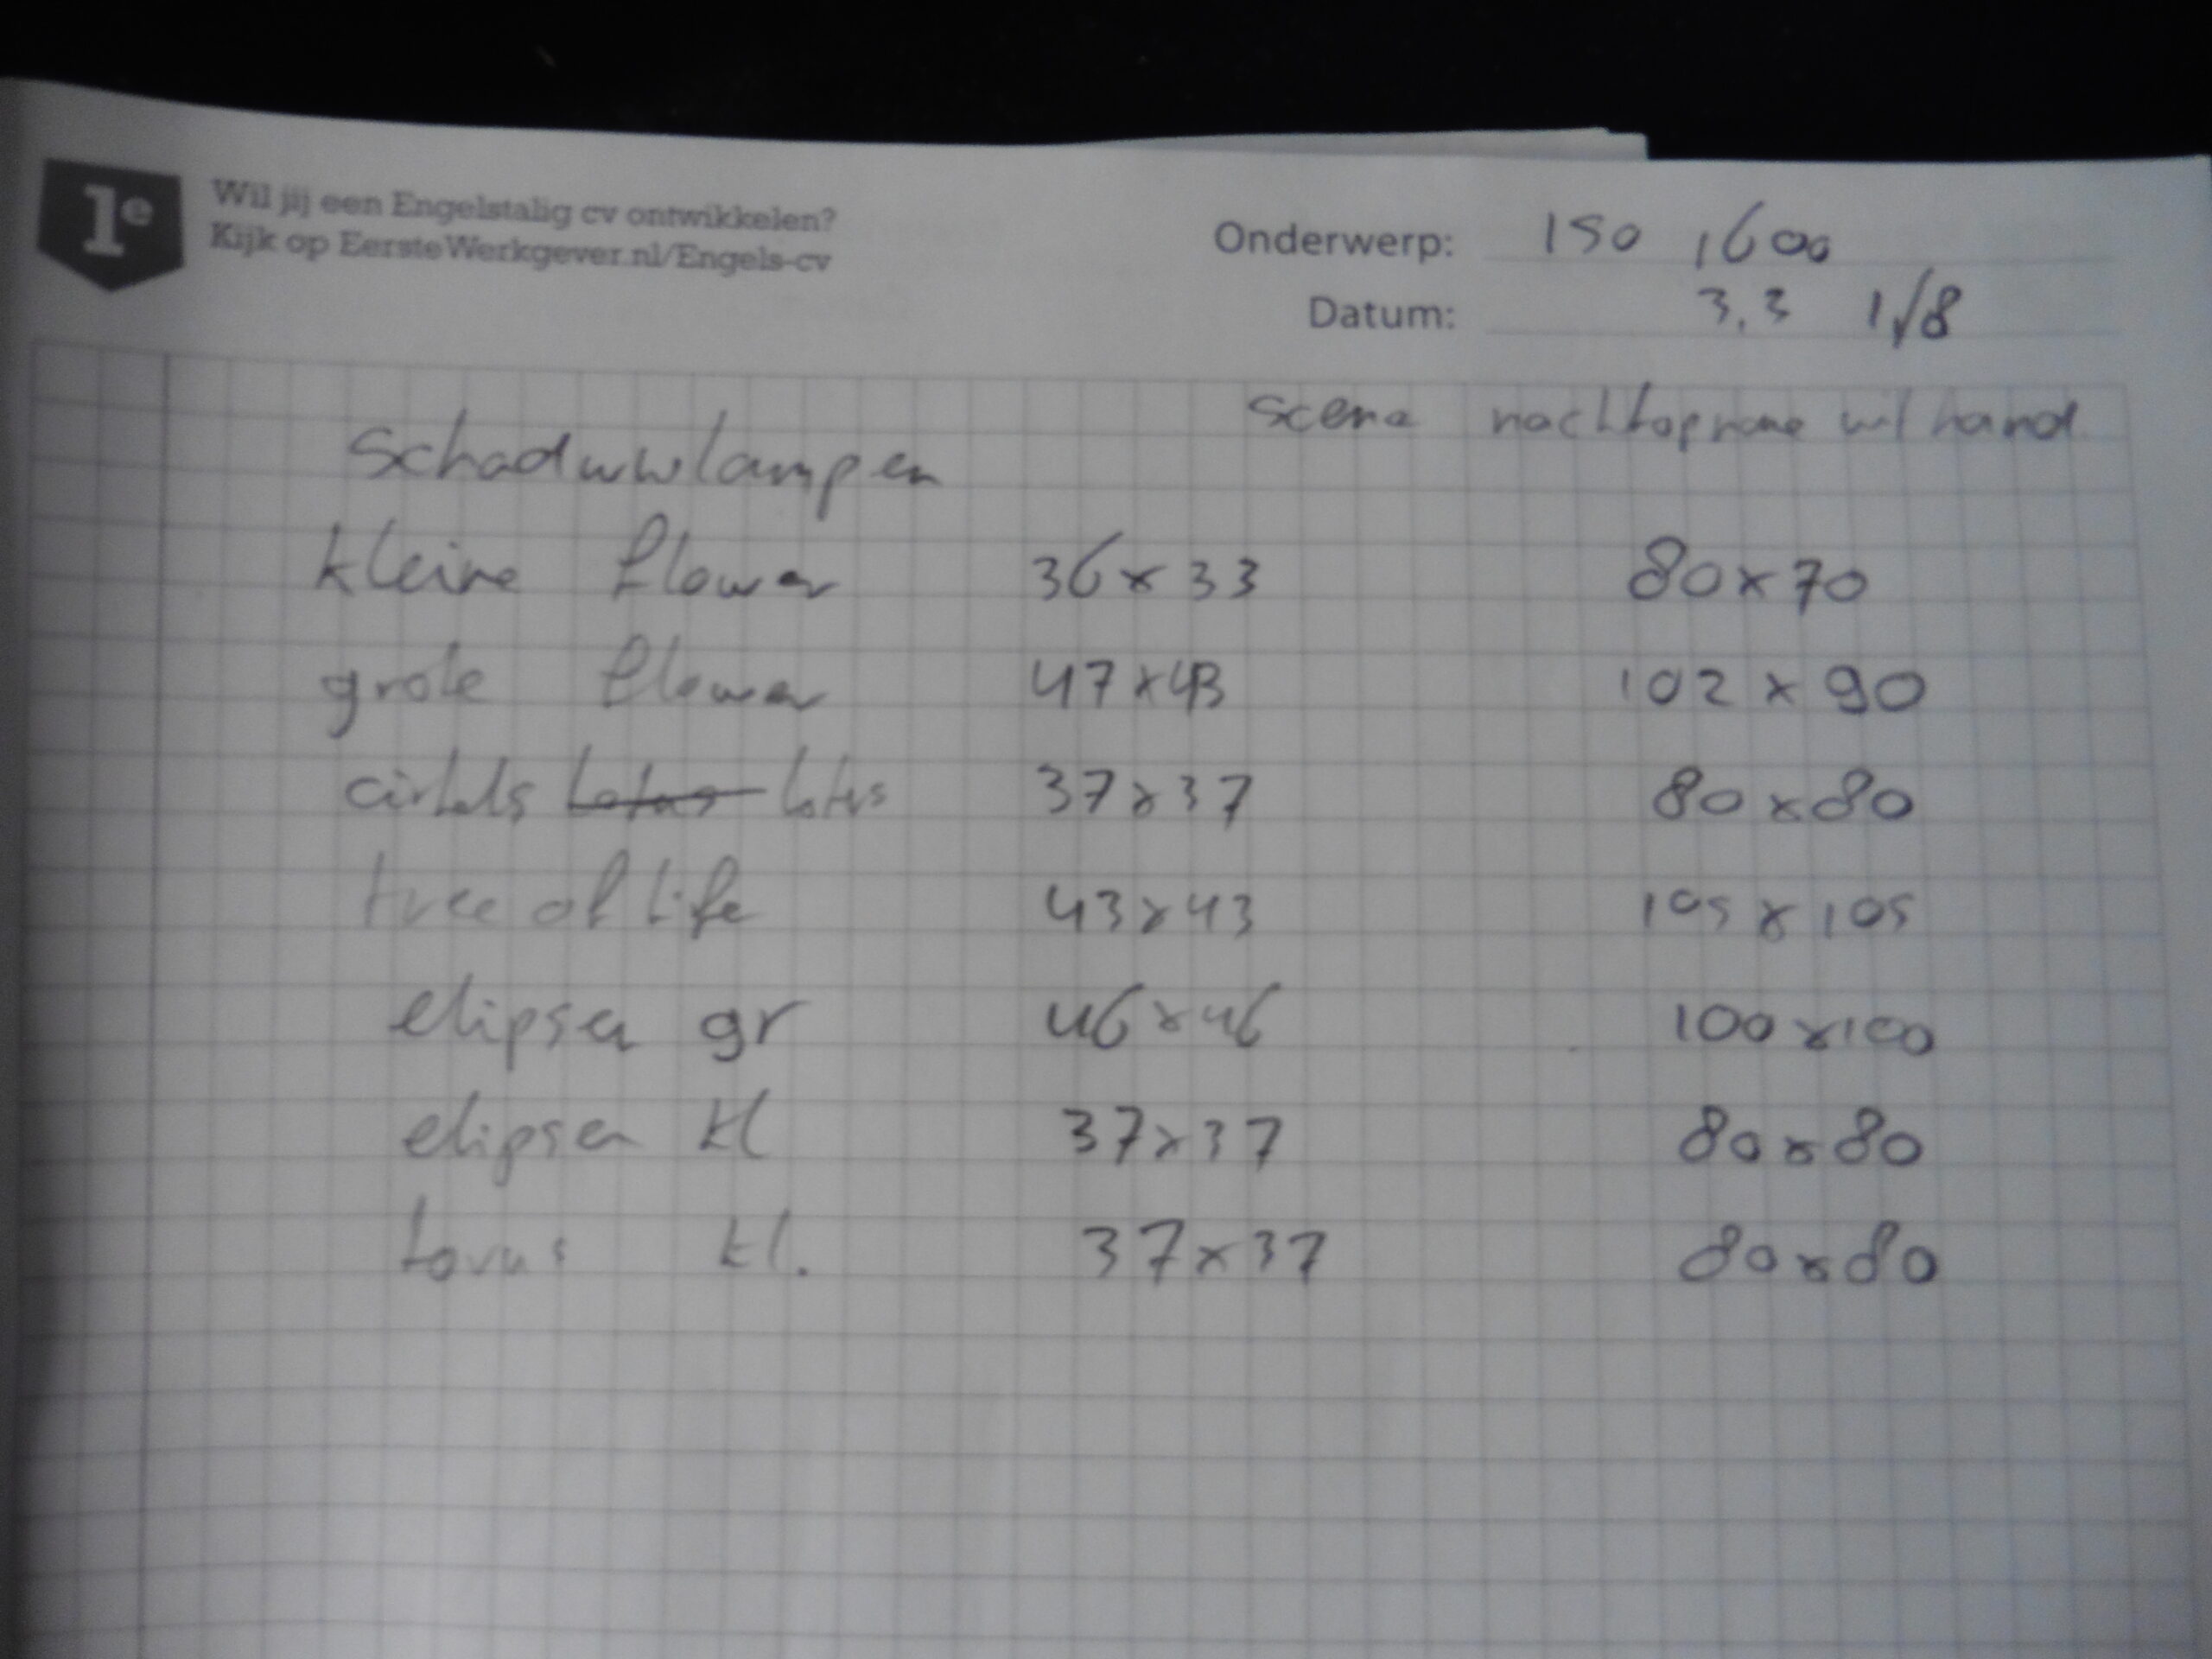 1e
Wil jij een Engelstalig cv ontwikkelen?
Kijk op EersteWerkgever.nl/Engels-cv
Onderwerp: ISO 1600
Datum: 3,3 1/8
scene nachtopname w/ hand
Schaduwlampen
kleine flower 36x33 80x70
grote flower 47x43 102x90
cirkels Lotus Lotus 37x37 80x80
tree of life 43x43 105x105
elipsen gr 46x46 100x100
elipsen kl 37x37 80x80
torus kl. 37x37 80x80